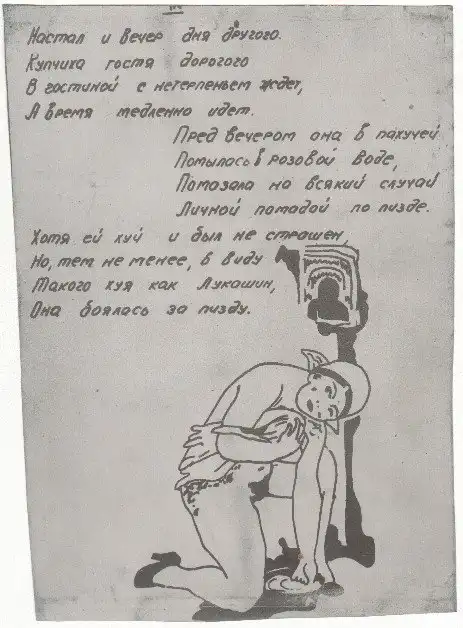 III
Настал и вечер дня другого.
Купчиха гостя дорогого
В гостиной с нетерпеньем ждет,
А время медленно идет.
Пред вечером она в пахучей
Помылась в розовой воде,
Помазала на всякий случай
Личной помадой по пизде.
Хотя ей хуй и был не страшен,
Но, тем не менее, в виду
Такого хуя как Лукашин,
Она боялась за пизду.